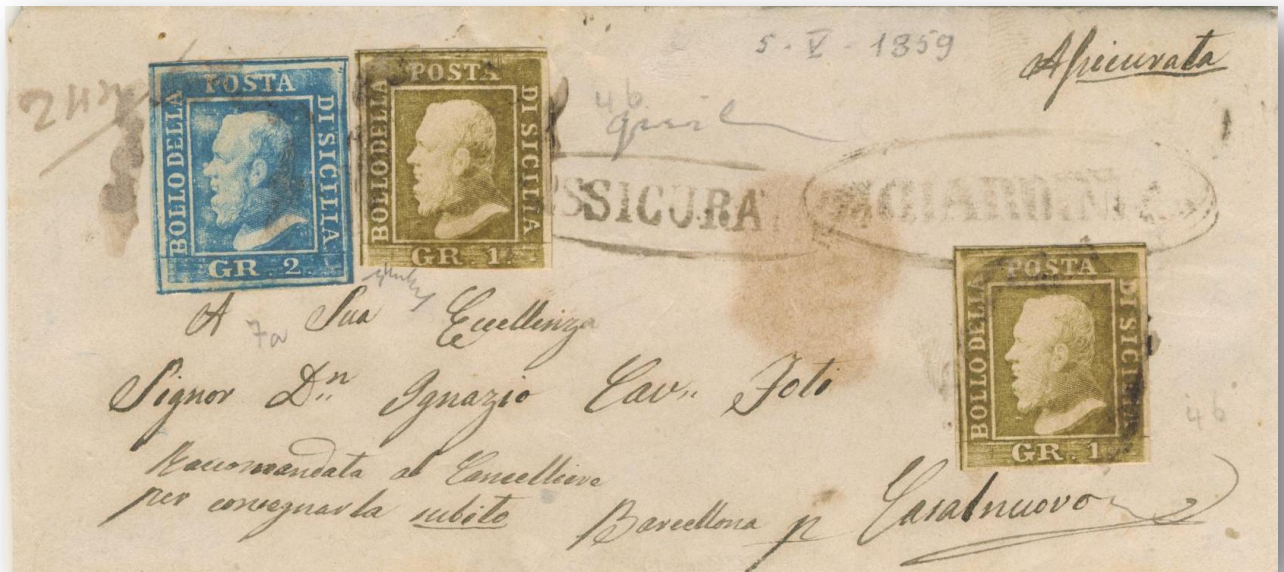 5 - V - 1859
Assicurata
POSTA
BOLLO DELLA
DI SICILIA
GR. 2.
POSTA
BOLLO DELLA
DI SICILIA
GR. 1.
4b
SSICURA
GIARDINI
POSTA
BOLLO DELLA
DI SICILIA
GR. 1
4b
7a
A Sua Eccellenza
Signor Dn Ignazio Cavr Foti
Raccomandata al Cancelliere
per consegnarla subito
Barcellona p Casalnuovo